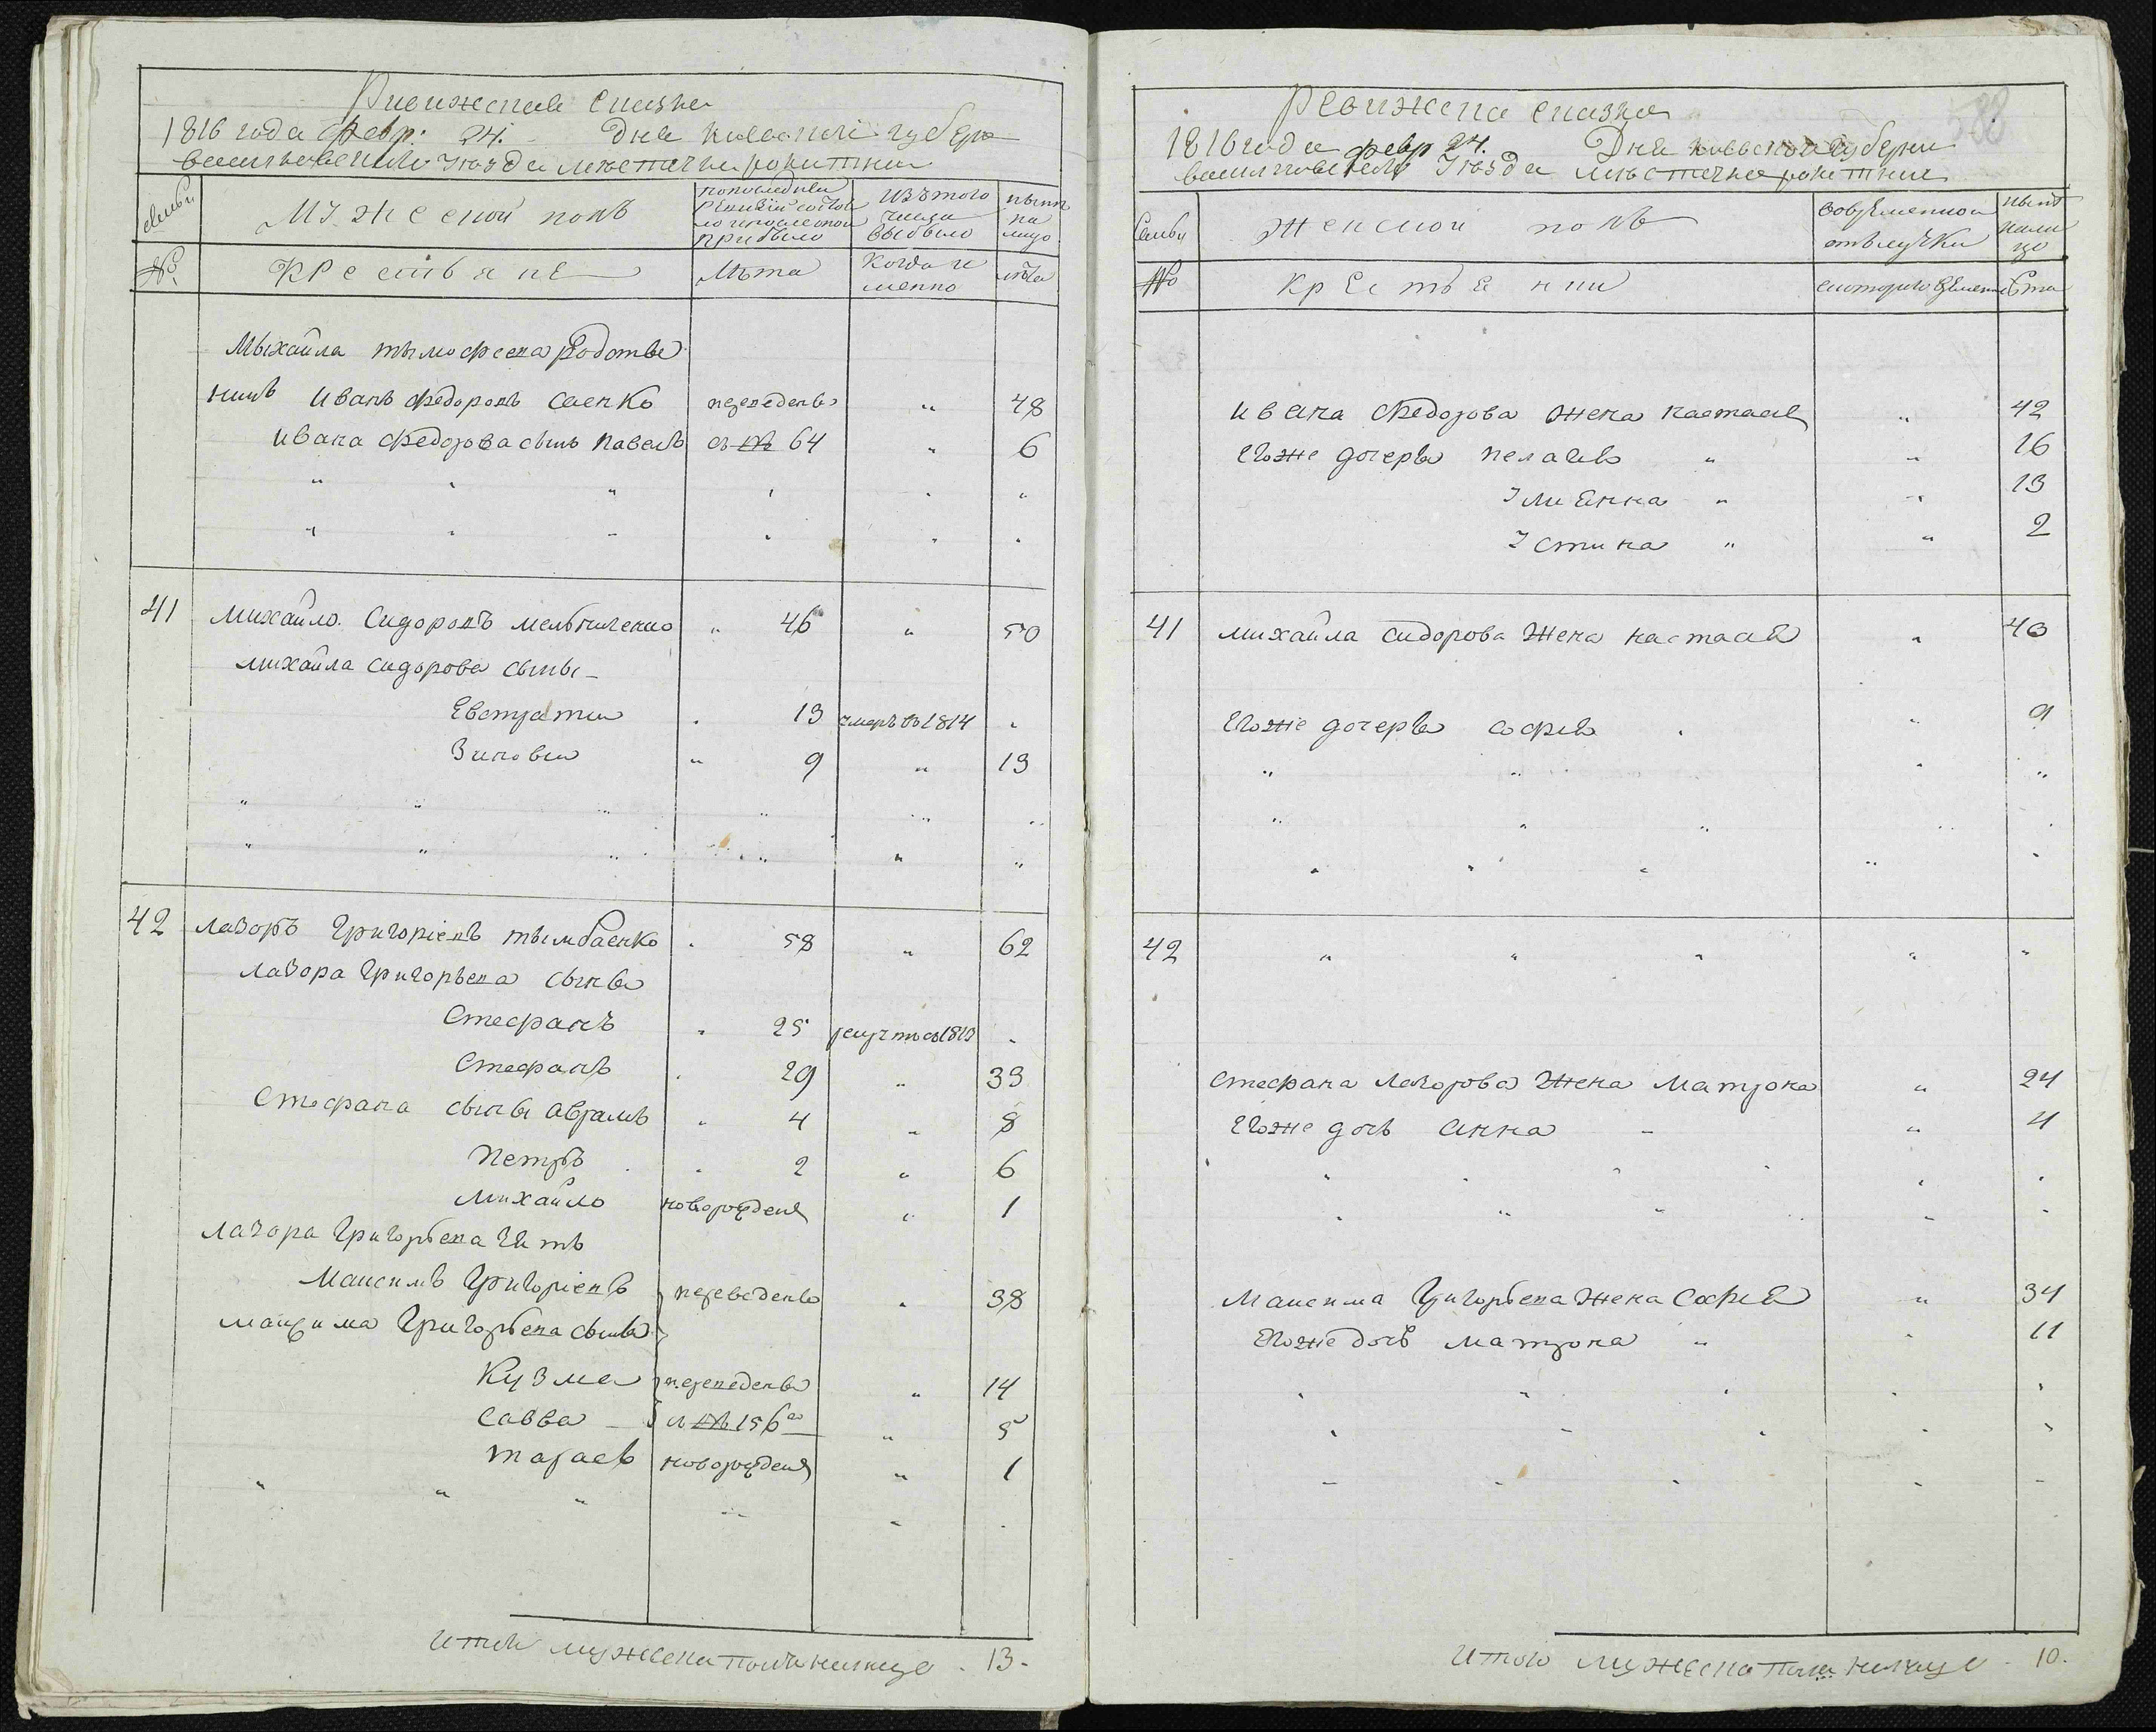 Ревижская сказка
1816 года февр: 24. Дня киевской губерн
васильковского уезда местечка рокитни
семьи
Мужеской полъ
по последней ревизии состояло и после оной прибыло
изъ того числа выбыло
ныне на лицо
№
Крестьяне
Лѣта
Когда именно
лѣта
Мыхайла тымофеева Родстве
никъ Иванъ Федоровъ Саенко переведенъ " 48
Ивана Федорова сынъ Павелъ съ № 64 " 6
41 Михайло Сидоровъ Мельниченко " 46 " 50
Михайла Сидорова сыны
Евстратий 13 умеръ въ 1814 "
Зиновий " 9 " 13
42 Лазоръ Григоріевъ тымбаенко " 58 " 62
Лазора Григорьева сыны
Стефанъ " 25 рекрутъ въ 1813 "
Стефанъ " 29 " 33
Стефана сыны Аврамъ " 4 " 8
Петръ " 2 " 6
Михайло новорожденъ " 1
Лазора Григорьева зять
Максимъ Григоріевъ переведенъ " 38
Максима Григорьева сыны
Кузма переведены " 14
Савва съ № 156го " 5
Тарасъ новорожденъ " 1
Итого мужеска пола на лицо 13.
588
Ревижска сказка
1816 года февр 24. Дня киевской губерни
васильковского уезда местечка рокитни
Семьи
Женской полъ
во временной отлучки
ныне на лицо
№
Крестьянки
с которого времени
лѣта
Ивана Федорова жена Настасия " 42
Егоже дочеры Пелагия " " 16
Улиянна " " 13
Устина " " 2
41 Михайла Сидорова жена Настасия " 40
Егоже дочеры София " 9
42 " " " " "
Стефана Лазорова жена Матрона " 24
Егоже дочь Анна " 4
Максима Григорьева жена София " 34
Егоже дочь Матрона " " 11
Итого мужеска пола на лицо 10.